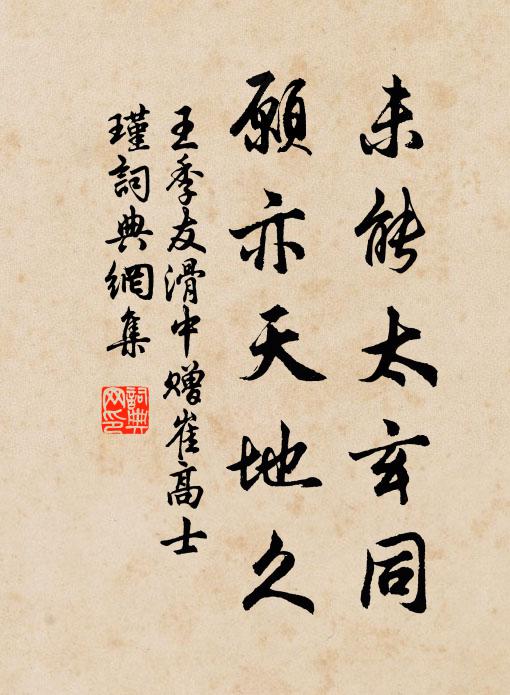 未能太玄同
願亦天地久
王季友滑中贈崔高士
瑾詞典網集
詞典網印